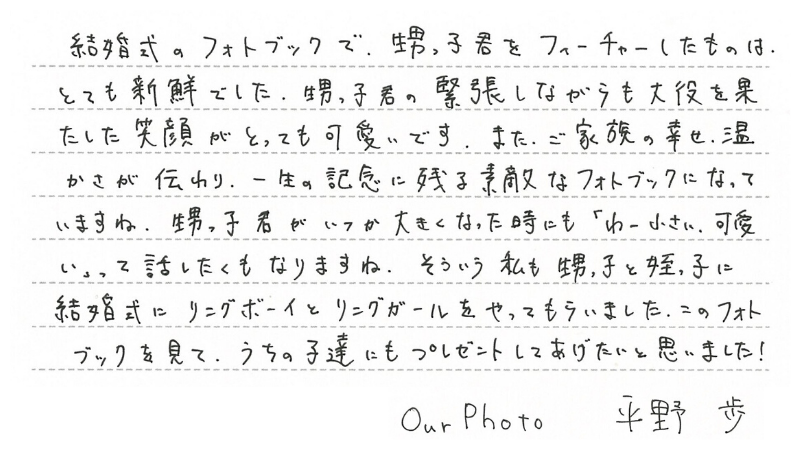 結婚式のフォトブックで、甥っ子君をフィーチャーしたものは、
とても新鮮でした。甥っ子君の緊張しながらも大役を果
たした笑顔がとっても可愛いです。また、ご家族の幸せ、温
かさが伝わり、一生の記念に残る素敵なフォトブックになって
いますね。甥っ子君がいつか大きくなった時にも「わー小さい、可愛
い」って話したくもなりますね。そういう私も甥っ子と姪っ子に
結婚式にリングボーイとリングガールをやってもらいました。このフォト
ブックを見て、うちの子達にもプレゼントしてあげたいと思いました!
Our Photo 平野 歩